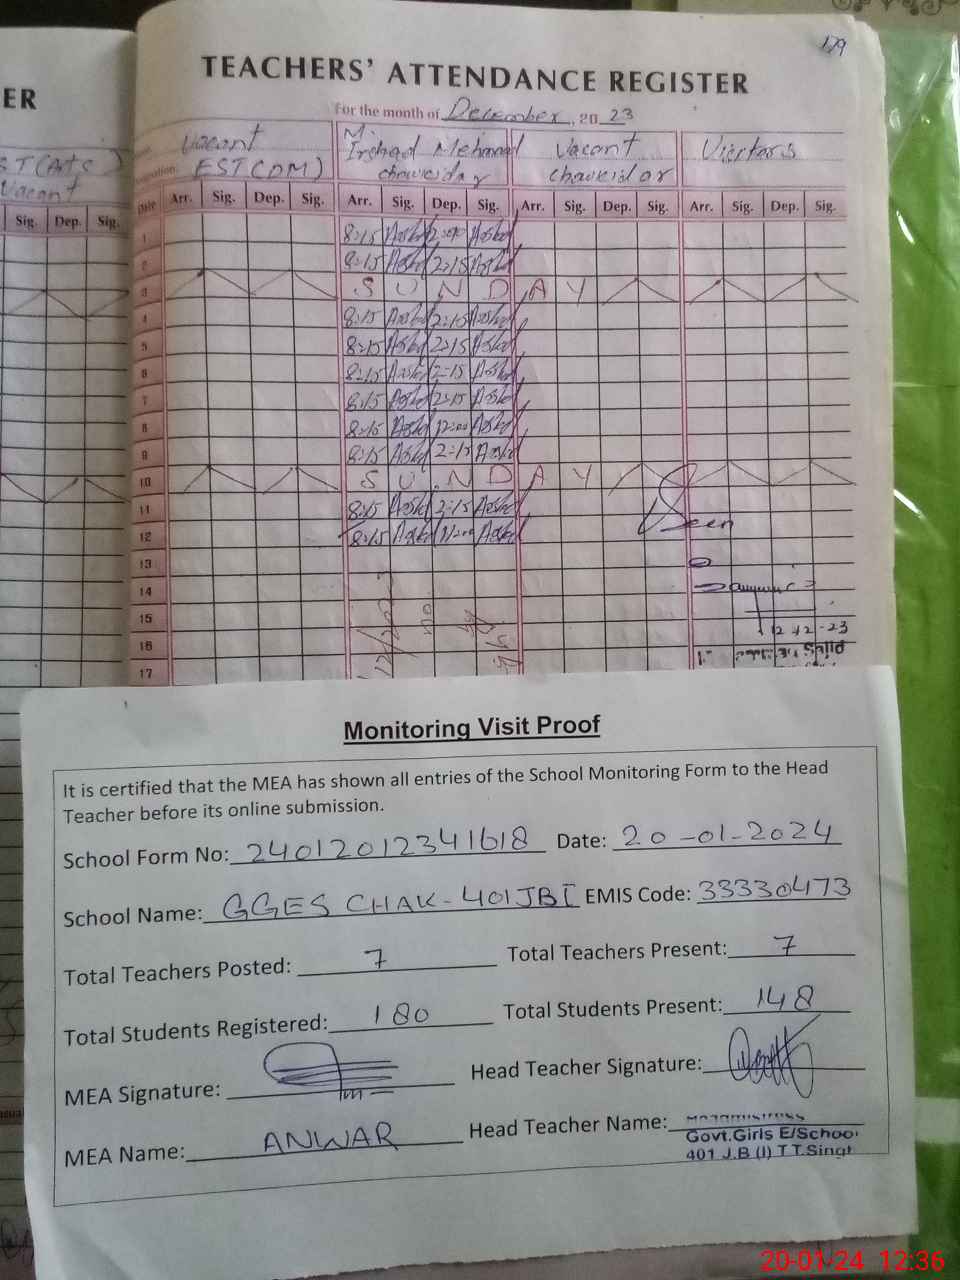 179
ER
TEACHERS' ATTENDANCE REGISTER
For the month of December, 2023
Vacant M. Irshad Mehmood Vacant Visitors
EST(DM) chowcidar chowcidar
Vacant
Date Arr. Sig. Dep. Sig. Arr. Sig. Dep. Sig. Arr. Sig. Dep. Sig. Arr. Sig. Dep. Sig.
Sig. Dep. Sig.
1 8:15
2 8:15 2:15
3 S U N D A Y
4 8:15 2:15
5 8:15 2:15
6 8:15 2:15
7 8:15 2:15
8 8:15 12:00
9 8:15 2:15
10 S U N D A Y
11 8:15 2:15
12 8:15
Seen
13
14
15
12-12-23
16
17
Monitoring Visit Proof
It is certified that the MEA has shown all entries of the School Monitoring Form to the Head
Teacher before its online submission.
School Form No: 24012012341618 Date: 20-01-2024
School Name: GGES CHAK-401JBI EMIS Code: 33330473
Total Teachers Posted: 7 Total Teachers Present: 7
Total Students Registered: 180 Total Students Present: 148
MEA Signature: Head Teacher Signature:
MEA Name: ANWAR Head Teacher Name:
Govt.Girls E/School
401 J.B (I) T.T.Singh
20-01-24 12:36